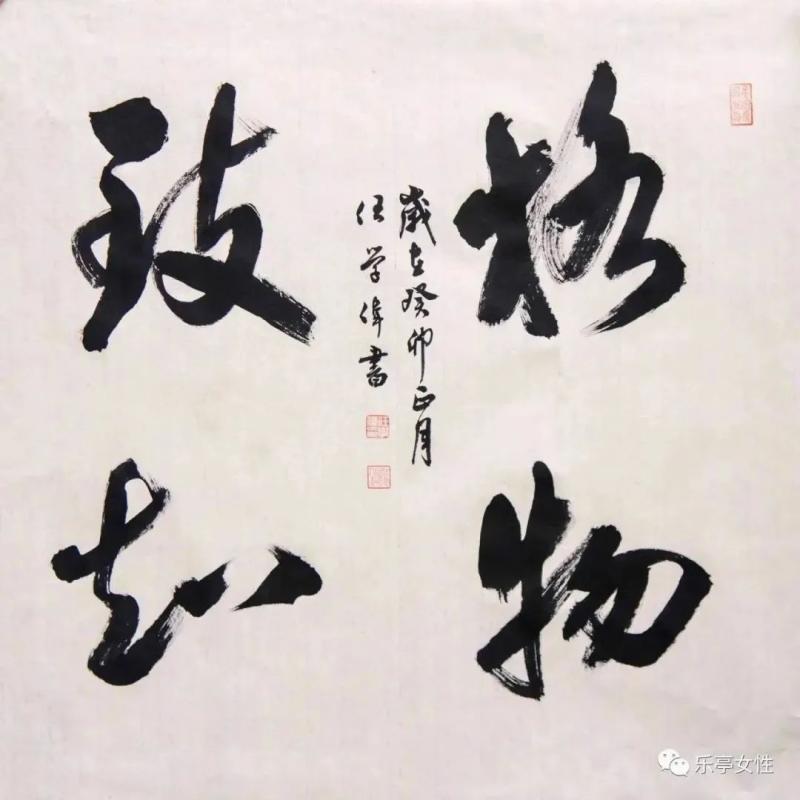 格物
致知
岁在癸卯正月
任学伟书
乐亭女性